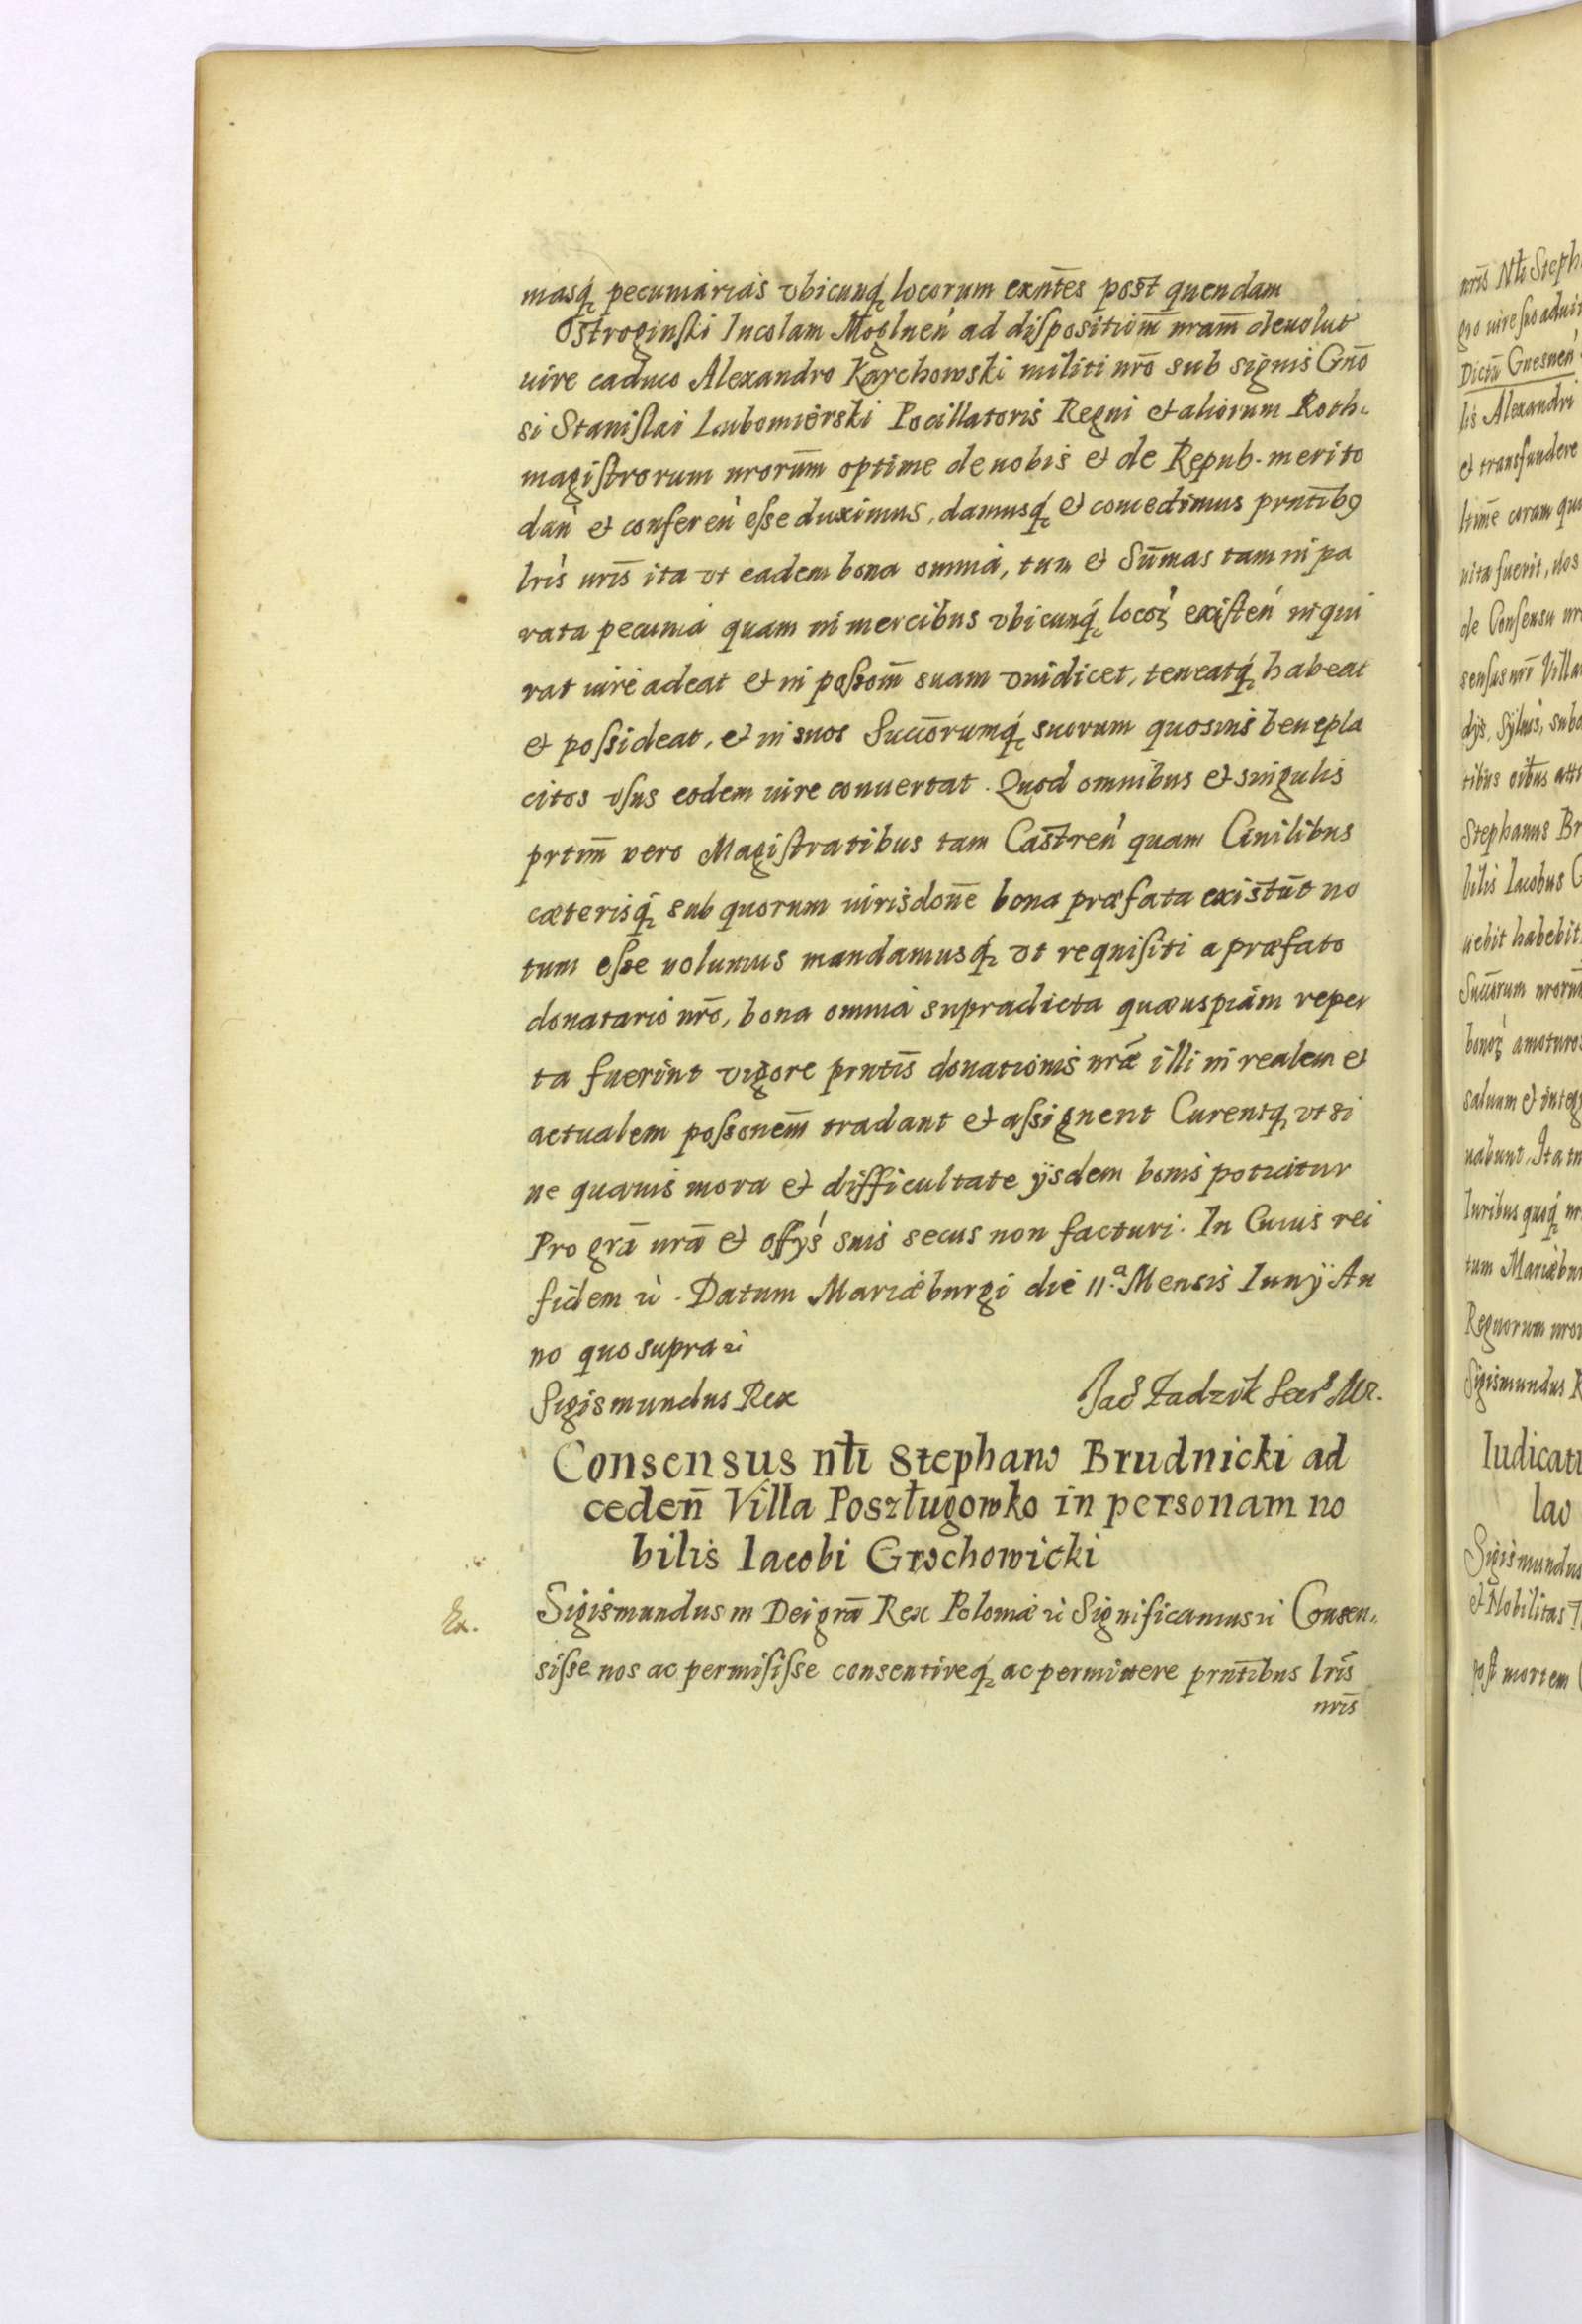 masq́ pecuniarias vbicunq́ locorum exñtes post quendam
Ostroginski Incolam Moglneń ad dispositiom̃ nram̃ deuolut
iure caduco Alexandro Karchowski militi nrõ sub signis Gnõ
si Stanislai Lubomierski Pocillatoris Regni et aliorum Roth-
magistrorum nrorũm optime de nobis et de Repub. merito
dań et confereń esse duximus, damusq́ et concedimus prntĩbꝰ
lrĩs nrĩs ita vt eadem bona omnia, tum et Sum̃as tam in pa
rata pecunia quam in mercibus vbicunq́ locoꝝ existeń inqui
rat iure adeat et in possom̃ suam vnidicet, teneatq́ habeat
et possideat, et in suos Succõrumq́ suorum quosuis benepla
citos vsus eodem iure conuertat. Quod omnibus et singulis
prtim̃ vero Magistratibus tam Castreń quam Ciuilibus
cæterisq́ sub quorum iurisdoñe bona præfata existũt no
tum esse uolumus mandamusq́ vt requisiti a præfato
donatario nrõ, bona omnia supradicta quæuspiam reper
ta fuerint vigore prntĩs donationis nrã̃e illi in realem et
actualem possonem̃ tradant et assignent Curentq́ vt si
ne quauis mora et difficultate ijsdem bonis potiatur
Pro grã nrã et offýs suis secus non facturi. In Cuius rei
fidem ⁊. Datum Mariæburgi die 11.ª Mensis Iunÿ An
no quo supra ⁊
Sigismundus Rex Jac̃ Zadzik Secrs Mr.
Consensus nłi Stephano Brudnicki ad
cedeñ Villa Poszługowko in personam no
bilis Iacobi Grochowicki
Ex. Sigismundus III Dei grã Rex Poloniæ ⁊ Significamus ⁊ Consen-
sisse nos ac permisisse consentireq́ ac permittere prntĩbus lrĩs
nrĩs
nrĩs Nłi Steph
Dictũ Gnesneń
lis Alexandri
et transfundere
uita fuerit, nos
de Consensu nr
dijs, Syluis, subd
Stephanus Br
bilis Iacobus G
uebit habebit
Succõrum nrorũ
bonoꝝ amoturos
saluum et integ
nabunt. Ita tn
Iuribus quoq́ nr
tum Mariæbur
Regnorum nror
Sigismundus R
Iudicatu
lao
Sigismundus
et Nobilitas
post mortem